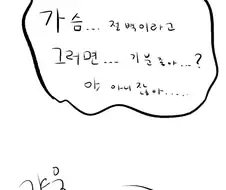 가슴... 절벽이라고
그러면... 기분 좋아...?
야 아니잖아.....